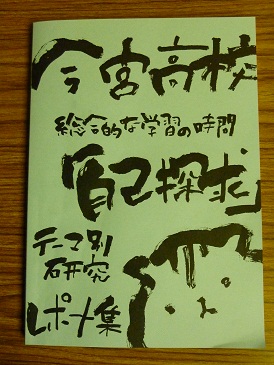 今宮高校
総合的な学習の時間
「自己探求」
テーマ別
研究
レポート集